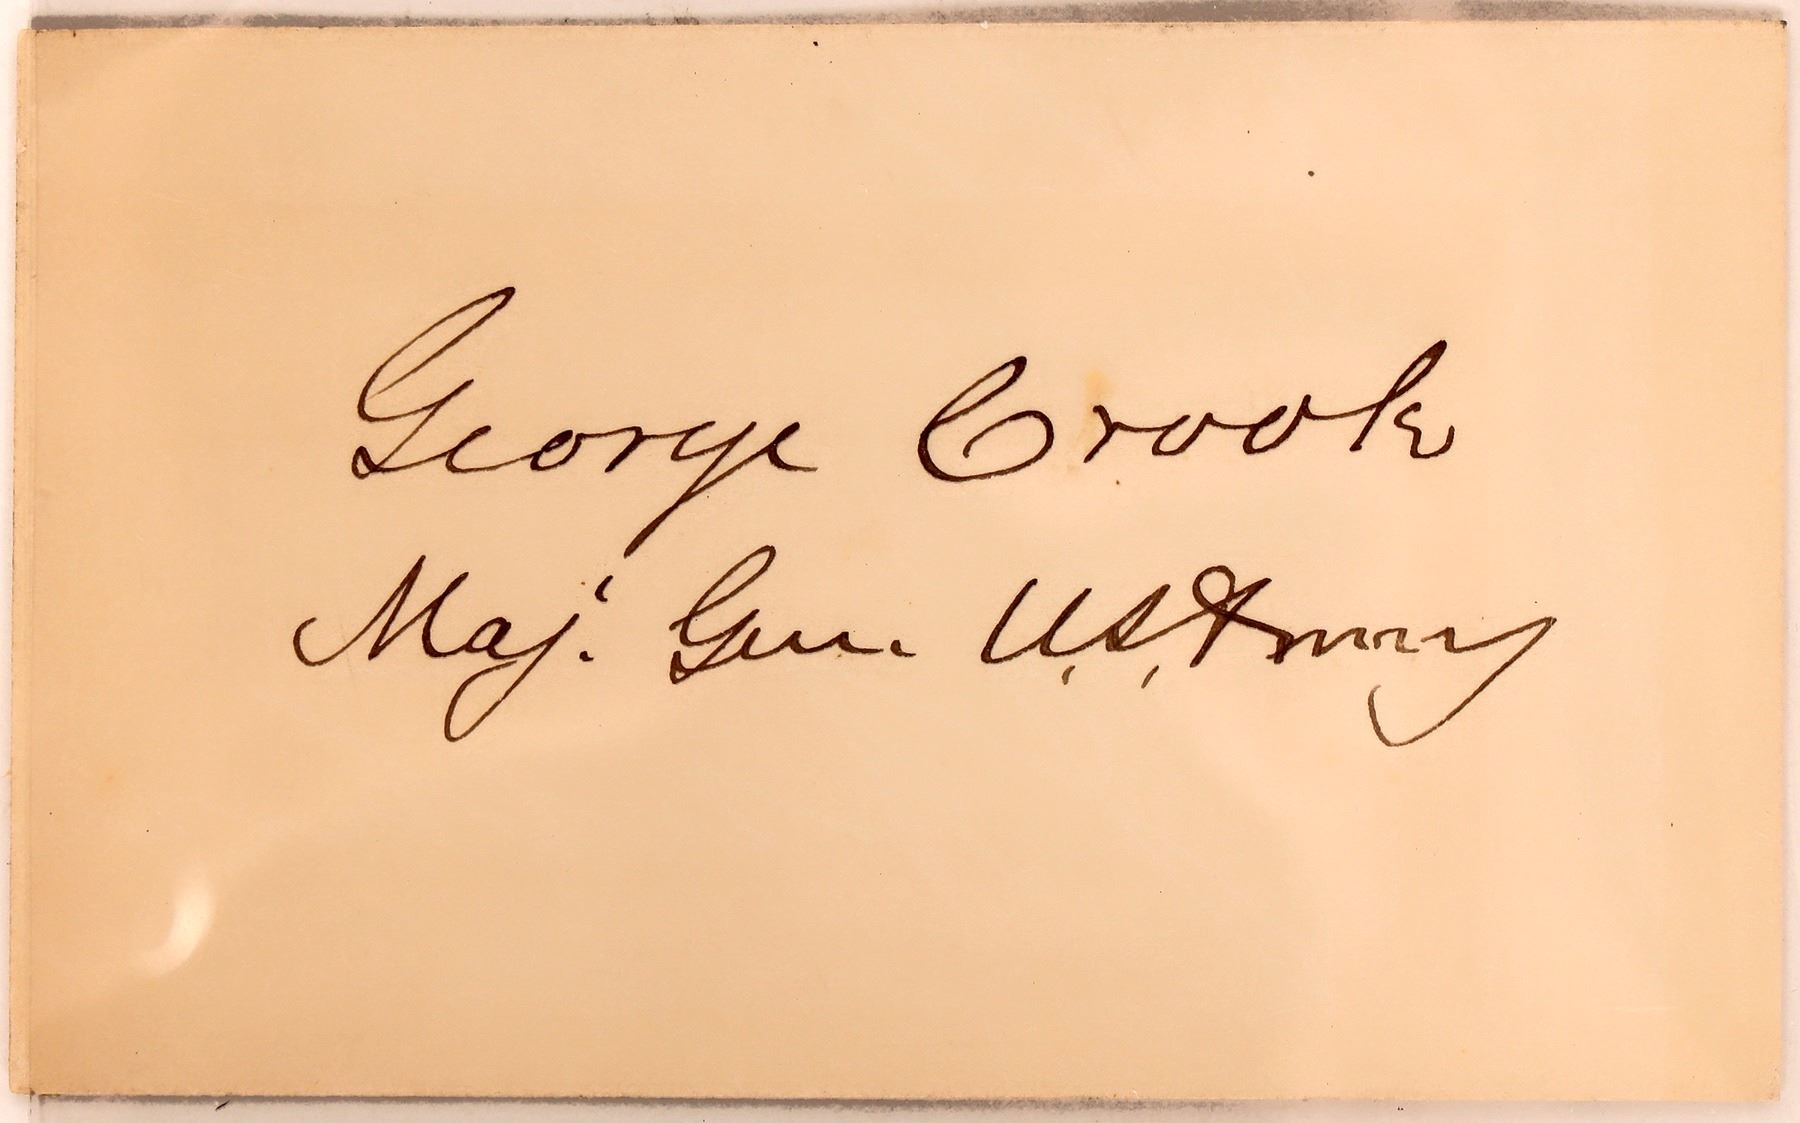 George Crook
Maj. Gen. U.S. Army